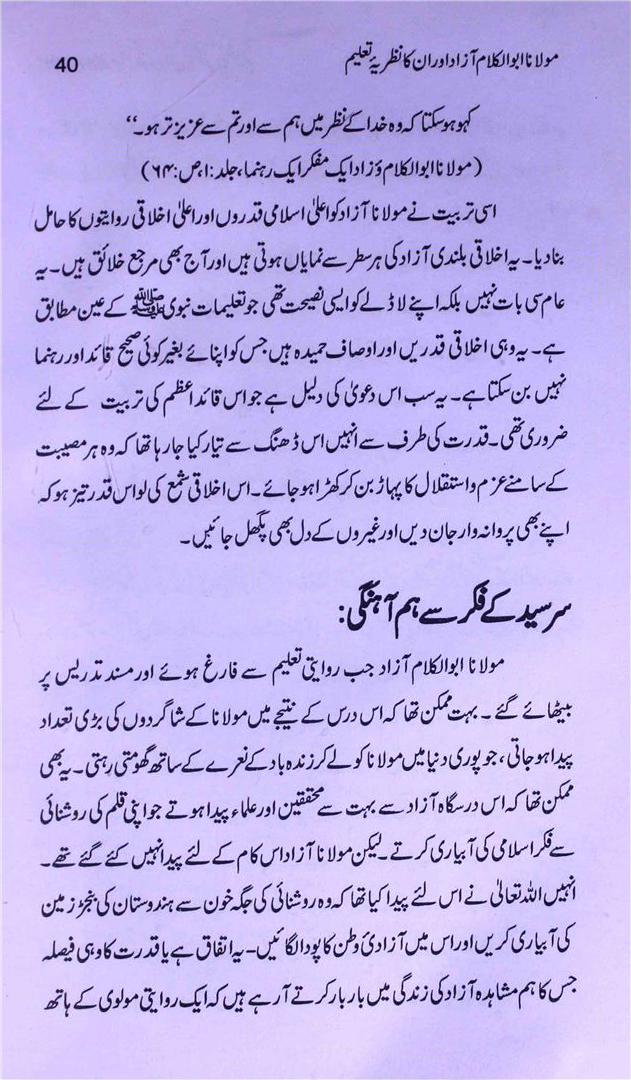 مولانا ابوالکلام آزاد اور ان کا نظریۂ تعلیم 40
کہو ہو سکتا کہ وہ خدا کے نظر میں ہم سے اور تم سے عزیز تر ہو۔‘‘
(مولانا ابوالکلام ؤزاد ایک مفکر ایک رہنما، جلد:۱،ص:۶۴)
اسی تربیت نے مولانا آزاد کو اعلیٰ اسلامی قدروں اور اعلیٰ اخلاقی روایتوں کا حامل
بنا دیا۔ یہ اخلاقی بلندی آزاد کی ہر سطر سے نمایاں ہوتی ہیں اور آج بھی مرجع خلائق ہیں۔ یہ
عام سی بات نہیں بلکہ اپنے لاڈلے کو ایسی نصیحت تھی جو تعلیمات نبوی ﷺ کے عین مطابق
ہے۔ یہ وہی اخلاقی قدریں اور اوصاف حمیدہ ہیں جس کو اپنائے بغیر کوئی صحیح قائد اور رہنما
نہیں بن سکتا ہے۔ یہ سب اس دعویٰ کی دلیل ہے جو اس قائد اعظم کی تربیت کے لئے
ضروری تھی۔ قدرت کی طرف سے انہیں اس ڈھنگ سے تیار کیا جا رہا تھا کہ وہ ہر مصیبت
کے سامنے عزم و استقلال کا پہاڑ بن کر کھڑا ہو جائے۔ اس اخلاقی شمع کی لو اس قدر تیز ہو کہ
اپنے بھی پروانہ وار جان دیں اور غیروں کے دل بھی پگھل جائیں۔
سرسید کے فکر سے ہم آہنگی:
مولانا ابوالکلام آزاد جب روایتی تعلیم سے فارغ ہوئے اور مسند تدریس پر
بیٹھائے گئے۔ بہت ممکن تھا کہ اس درس کے نتیجے میں مولانا کے شاگردوں کی بڑی تعداد
پیدا ہو جاتی، جو پوری دنیا میں مولانا کو لے کر زندہ باد کے نعرے کے ساتھ گھومتی رہتی۔ یہ بھی
ممکن تھا کہ اس درسگاہ آزاد سے بہت سے محققین اور علماء پیدا ہوتے جو اپنی قلم کی روشنائی
سے فکر اسلامی کی آبیاری کرتے۔ لیکن مولانا آزاد اس کام کے لئے پیدا نہیں کئے گئے تھے۔
انہیں اللہ تعالیٰ نے اس لئے پیدا کیا تھا کہ وہ روشنائی کی جگہ خون سے ہندوستان کی بنجڑ زمین
کی آبیاری کریں اور اس میں آزادیٔ وطن کا پودا لگائیں۔ یہ اتفاق ہے یا قدرت کا وہی فیصلہ
جس کا ہم مشاہدہ آزاد کی زندگی میں بار بار کرتے آ رہے ہیں کہ ایک روایتی مولوی کے ہاتھ